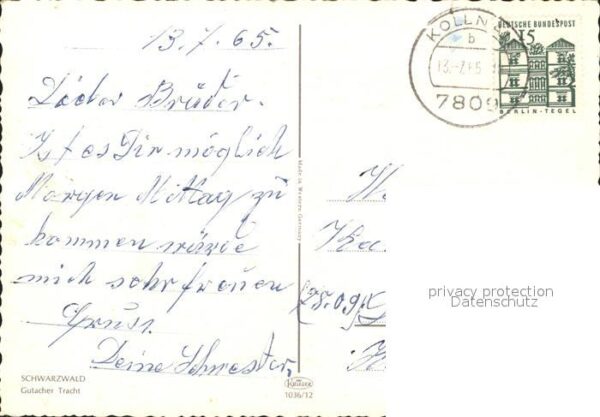 13.7.65.
Lieber Bruder.
Ist es Dir möglich
Morgen Mittag zu
kommen würde
mich sehr freuen
Gruss.
Deine Schwester,
SCHWARZWALD
Gutacher Tracht
Made in Western Germany
KRÜGER
1036/12
KOLLN
b
13.-7.65
7809
DEUTSCHE BUNDESPOST
15
BERLIN-TEGEL
privacy protection
Datenschutz